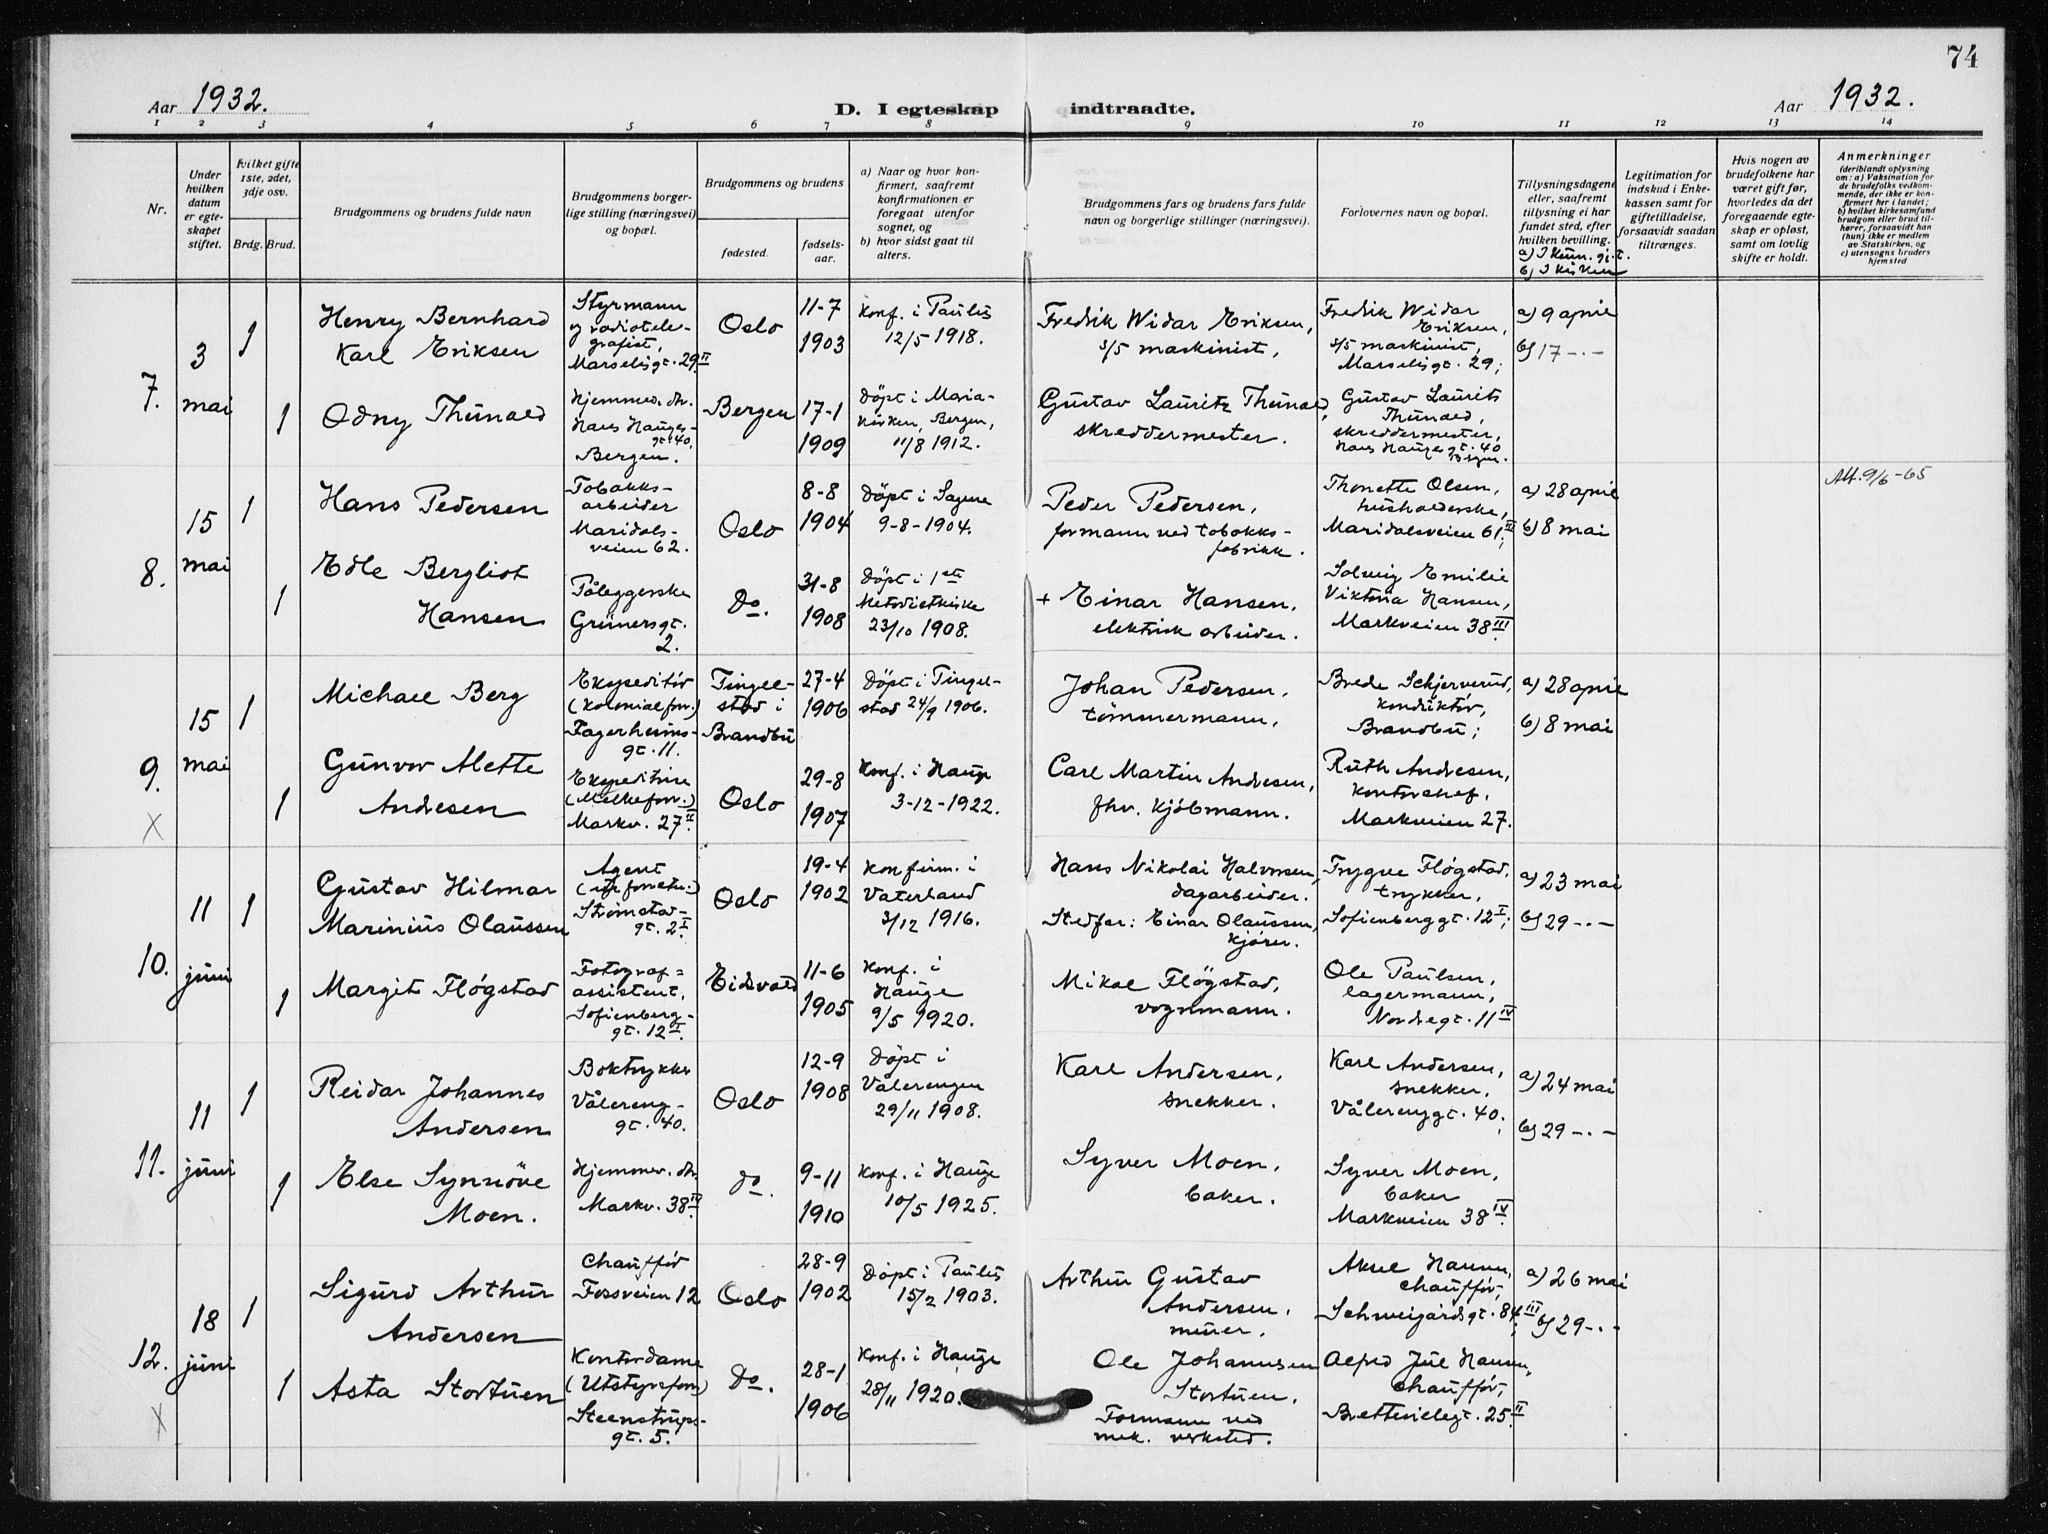 74
Aar 1932.
D. I egteskap indtraadte.
Aar 1932.
1 2 3 4 5 6 7 8 9 10 11 12 13 14
Nr.
Under
hvilken
datum
er egte-
skapet
stiftet.
hvilket gifte
1ste, 2det,
3dje osv.
Brdg. Brud.
Brudgommens og brudens fulde navn
Brudgommens borger-
lige stilling (næringsvei)
og bopæl.
Brudgommens og brudens
fødested.
fødsels-
aar.
a) Naar og hvor kon-
firmert, saafremt
konfirmationen er
foregaat utenfor
sognet, og
b) hvor sidst gaat til
alters.
Brudgommens fars og brudens fars fulde
navn og borgerlige stillinger (næringsvei).
Forlovernes navn og bopæl.
Tillysningsdagene
eller, saafremt
tillysning ei har
fundet sted, efter
hvilken bevilling.
Legitimation for
indskud i Enke-
kassen samt for
giftetilladelse,
forsaavidt saadan
tiltrænges.
Hvis nogen av
brudefolkene har
været gift før,
hvorledes da det
foregaaende egte-
skap er opløst,
samt om lovlig
skifte er holdt.
Anmerkninger
(deriblandt oplysning
om: a) Vaksination for
de brudefolks vedkom-
mende, der ikke er kon-
firmert her i landet;
b) hvilket kirkesamfund
brudgom eller brud til-
hører, forsaavidt han
(hun) ikke er medlem
av Statskirken, og
c) utensogns bruders
hjemsted
7.
3
mai
1
Henry Bernhard
Karl Eriksen
Styrmann
og radiotele-
grafist,
Marselisgt. 29 II
Oslo
11-7
1903
Konf. i Paulus
12/5 1918.
Fredrik Widar Eriksen,
s/s maskinist,
Fredrik Widar
Eriksen,
s/s maskinist,
Marselisgt. 29;
a) 9 april
b) 17 -.-
1
Odny Thunold
Hjemmev. dtr.
Hans Hauges-
gt. 40,
Bergen.
Bergen
17-1
1909
Døpt i Maria-
kirken, Bergen,
11/8 1912.
Gustav Lauritz Thunold,
skreddermester.
Gustav Lauritz
Thunold,
skreddermester,
Hans Hauges gt. 40
Bergen.
8.
15
mai
1
Hans Pedersen
Tobakks-
arbeider
Maridals-
veien 62.
Oslo
8-8
1904
Døpt i Sagene
9-8-1904.
Peder Pedersen,
formann ved tobakks-
fabrikk.
Thonette Olsen,
husholderske,
Maridalsveien 61 III;
a) 28 april
b) 8 mai
Att. 9/6-65
1
Edle Bergliot
Hansen
Påleggerske
Grünersgt.
2.
Do.
31-8
1908
Døpt i 1ste
Metodistkirke
23/10 1908.
+ Einar Hansen,
elektrisk arbeider.
Solveig Emilie
Viktoria Hansen,
Markveien 38 III.
9.
15
mai
1
Michael Berg
Ekspeditør
(kolonialforr.)
Fagerheims-
gt. 11.
Tingel-
stad i
Brandbu
27-4
1906
Døpt i Tingel-
stad 24/9 1906.
Johan Pedersen,
tømmermann,
Brede Schjerverud,
konduktør,
Brandbu;
a) 28 april
b) 8 mai
X
1
Gunvor Mette
Andresen
Ekspeditrise
(Melkeforr.)
Markv. 27 II.
Oslo
29-8
1907
Konf. i Hauge
3-12-1922.
Carl Martin Andresen,
fhv. kjøbmann.
Ruth Andresen,
kontorchef,
Markveien 27.
10.
11
juni
1
Gustav Hilmar
Marinius Olaussen
Agent
Strømstad-
gt. 2 I.
Oslo
19-4
1902
Konfirm. i
Vaterland
3/12 1916.
Hans Nikolai Halvorsen,
dagarbeider.
Stedfar: Einar Olaussen,
kjører.
Trygve Fløgstad,
trykker,
Sofienberggt. 12 I;
a) 23 mai
b) 29 -.-
1
Margit Fløgstad
Fotograf-
assistent,
Sofienberg-
gt. 12 I.
Eidsvold
11-6
1905
Konf. i
Hauge
9/5 1920.
Mikal Fløgstad,
vognmann.
Ole Paulsen,
lagermann,
Nordregt. 11 IV
11.
11
juni
1
Reidar Johannes
Andersen
Boktrykker
Vålereng-
gt. 40.
Oslo
12-9
1908
Døpt i
Vålerengen
29/11 1908.
Karl Andersen,
snekker.
Karl Andersen,
snekker.
Vålerenggt. 40.;
a) 24 mai
b) 29 -.-
1
Else Synnöve
Moen.
Hjemmev. dtr.
Markv. 38 IV.
do.
9-11
1910
Konf. i Hauge
10/5 1925.
Syver Moen,
baker.
Syver Moen,
baker
Markveien 38 IV.
12.
18
juni
1
Sigurd Arthur
Andersen
Chauffør
Fossveien 12
Oslo
28-9
1902
Døpt i Paulus
15/2 1903.
Arthur Gustav
Andersen,
murer.
Aksel Hansen,
chauffør,
Schweigårdsgt. 84 III;
a) 26 mai
b) 29 -.-
X
1
Asta Stortuen
Kontordame
(Utstyrsforr.)
Steenstrups-
gt. 5.
Do.
28-1
1906
Konf. i Hauge
28/11 1920.
Ole Johannesen
Stortuen,
Formann ved
mek. verksted.
Alfred Juul Hansen,
chauffør,
Brettevillegt. 25 II.